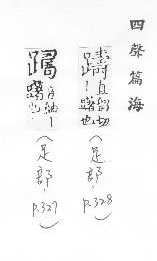 四聲篇海
躊直留切
｜躇也
（足部，P.328）
躅
｜躇也
（足部，P.327）